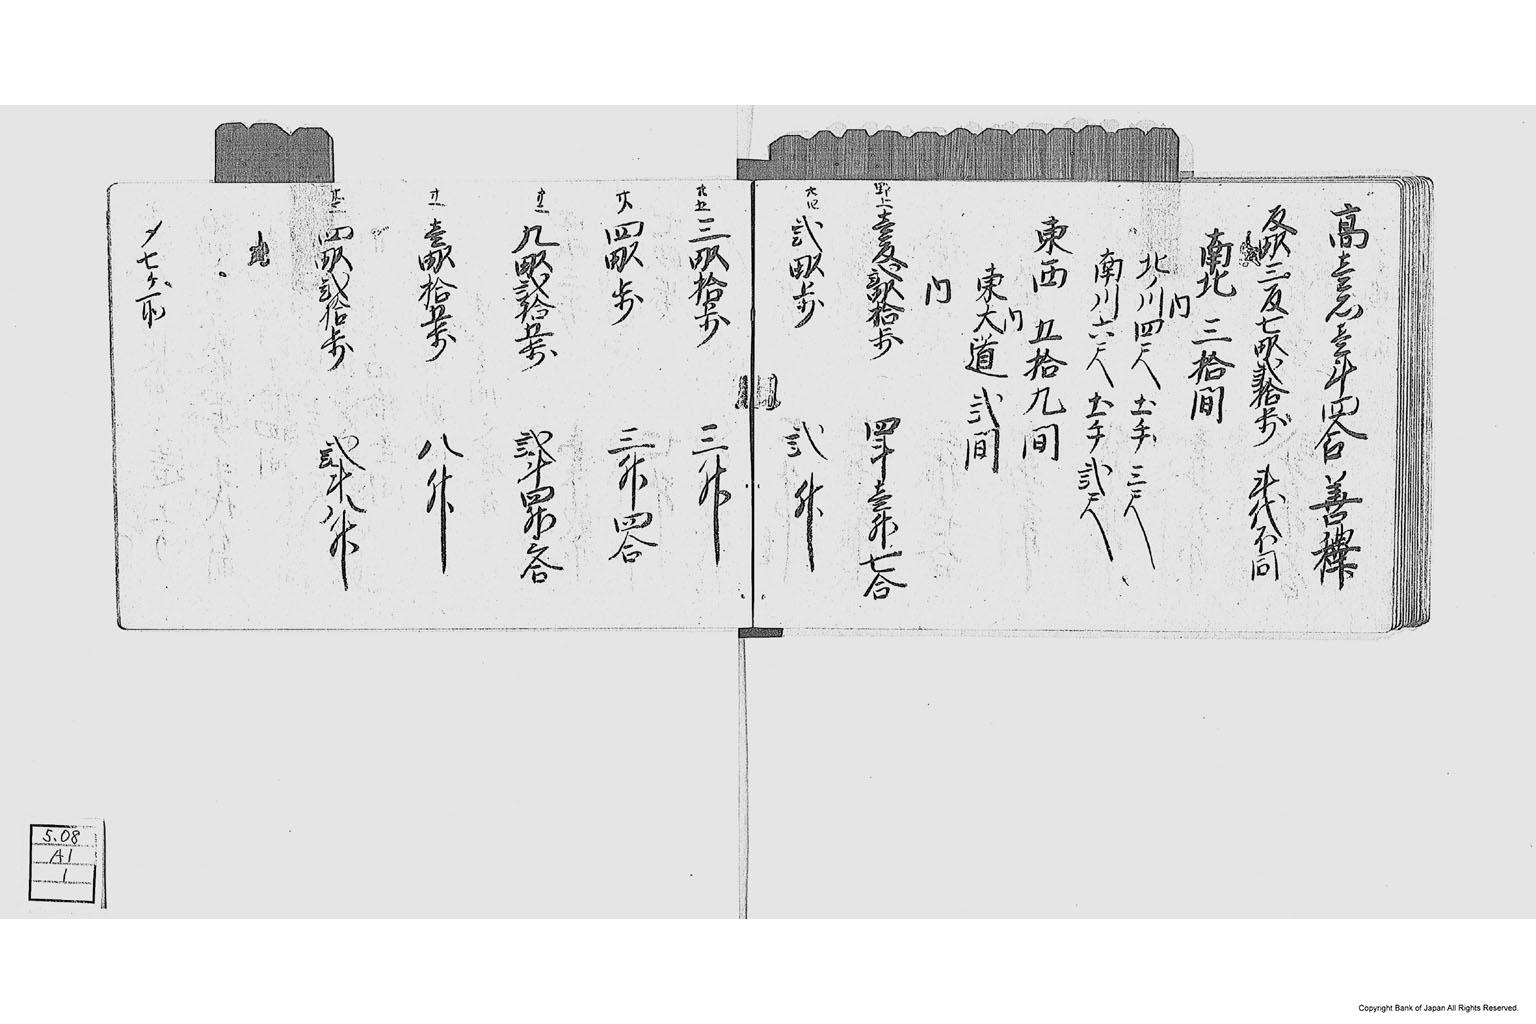 高壱石壱斗四合 善禅
反畝三反七畝弐拾歩 斗代不同
南北 三拾間
内
北ノ川四尺 土手 三尺
南川六尺 土手 弐尺
東西 五拾九間
内
東大道 弐間
内
野上 壱反弐畝拾歩 四斗壱升七合
弐畝歩 弐升
三畝拾歩 三升
四畝歩 三升四合
九畝弐拾五歩 弐斗四升六合
壱畝拾五歩 八升
四畝弐拾歩 弐斗八升
〆七ケ所
5.08
A1
1
Copyright Bank of Japan All Rights Reserved.